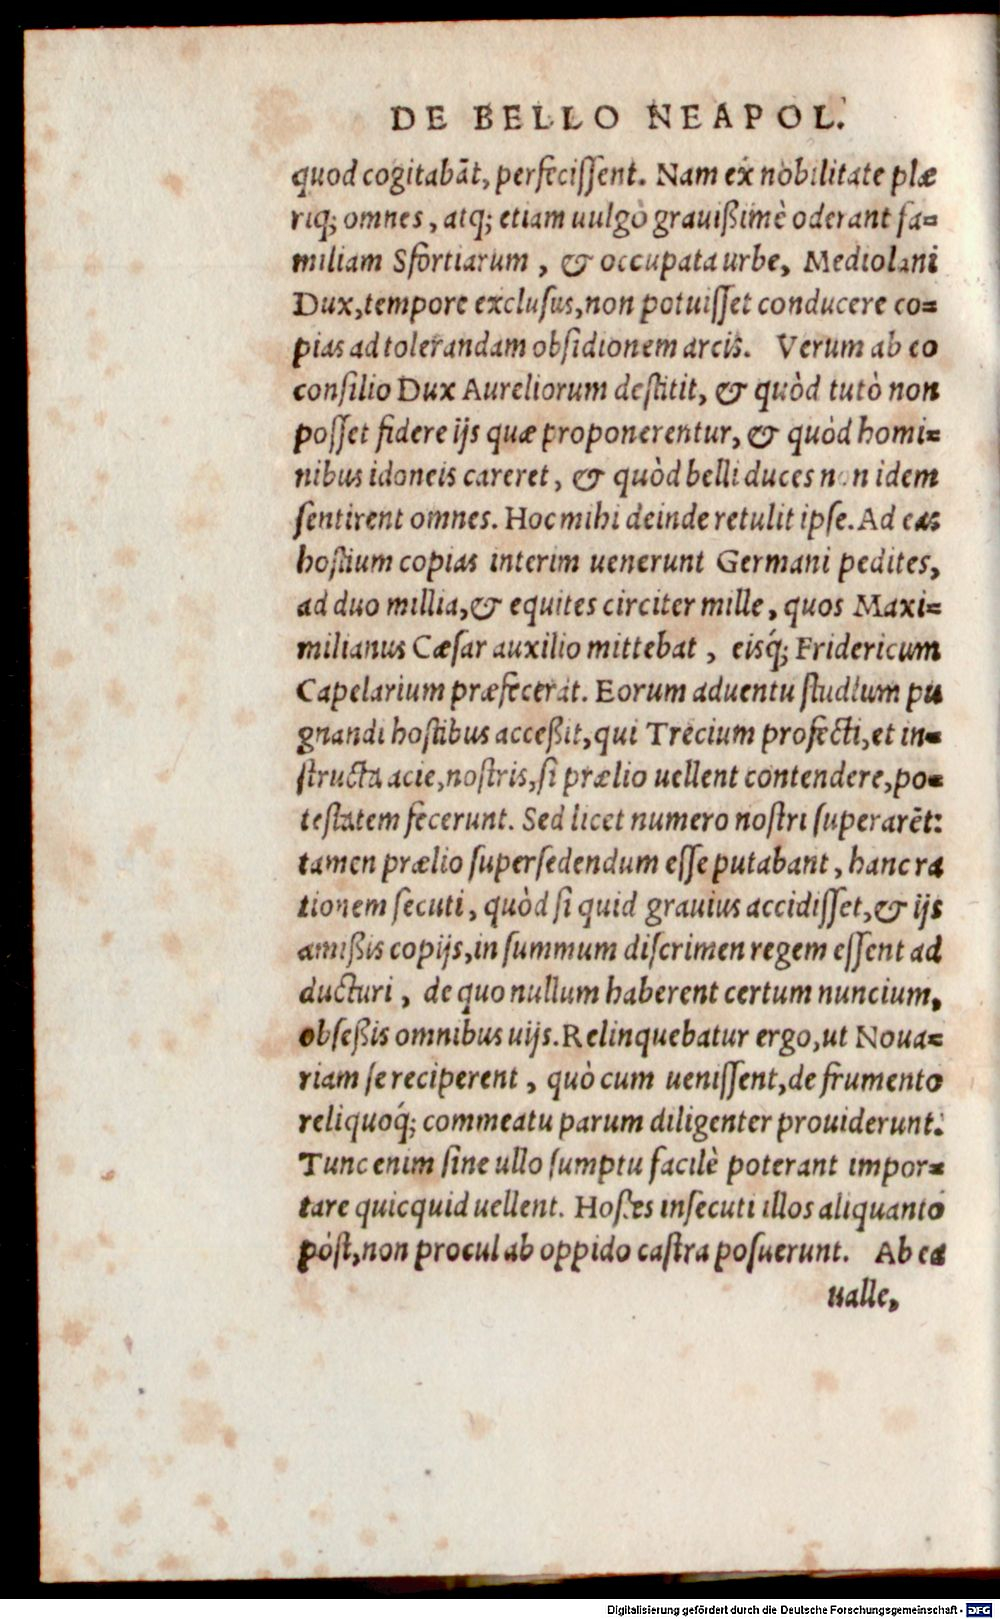 DE BELLO NEAPOL.
quod cogitabāt, perfecissent. Nam ex nobilitate plæ
riq; omnes, atq; etiam uulgò grauißimè oderant fa=
miliam Sfortiarum, & occupata urbe, Mediolani
Dux, tempore exclusus, non potuisset conducere co=
pias ad tolerandam obsidionem arcis. Verum ab eo
consilio Dux Aureliorum destitit, & quòd tutò non
posset fidere ijs quæ proponerentur, & quòd homi=
nibus idoneis careret, & quòd belli duces non idem
sentirent omnes. Hoc mihi deinde retulit ipse. Ad eas
hostium copias interim uenerunt Germani pedites,
ad duo millia, & equites circiter mille, quos Maxi=
milianus Cæsar auxilio mittebat, eisq́; Fridericum
Capelarium præfecerat. Eorum aduentu studium pu
gnandi hostibus acceßit, qui Trecium profecti, et in=
structa acie, nostris, si prælio uellent contendere, po=
testatem fecerunt. Sed licet numero nostri superarēt:
tamen prælio supersedendum esse putabant, hanc ra
tionem secuti, quòd si quid grauius accidisset, & ijs
amißis copijs, in summum discrimen regem essent ad
ducturi, de quo nullum haberent certum nuncium,
obseßis omnibus uijs. Relinquebatur ergo, ut Noua=
riam se reciperent, quò cum uenissent, de frumento
reliquoq́; commeatu parum diligenter prouiderunt.
Tunc enim sine ullo sumptu facilè poterant impor=
tare quicquid uellent. Hostes insecuti illos aliquantò
pòst, non procul ab oppido castra posuerunt. Ab ea
ualle,
Digitalisierung gefördert durch die Deutsche Forschungsgemeinschaft - DFG